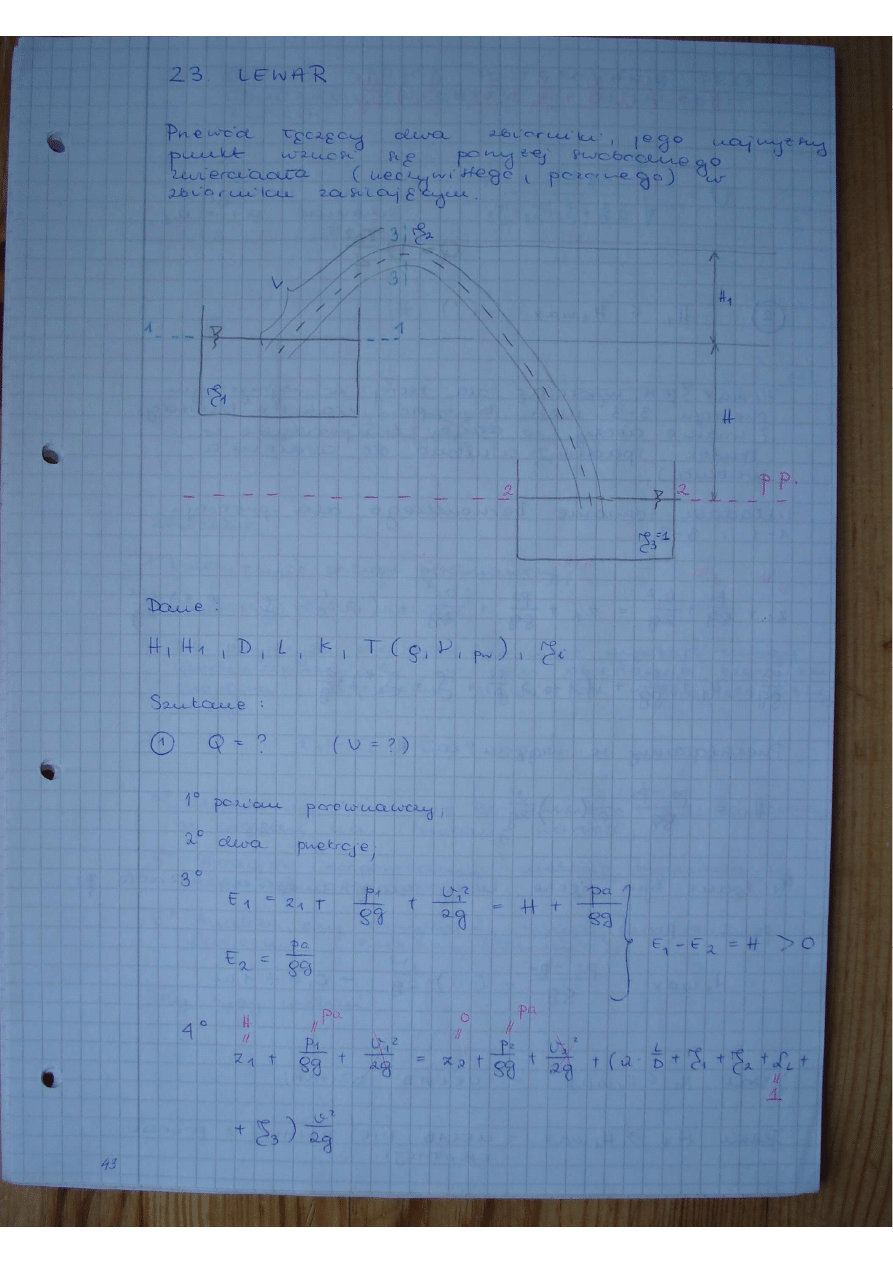 23. LEWAR
Przewód łączący dwa zbiorniki, jego najwyższy
punkt wznosi się powyżej swobodnego
zwierciadła (rzeczywistego, pozornego) w
zbiorniku zasilającym.
3 ζ2
V
3
H1
1 1
ζ1
H
2 2 p.p.
ζ3=1
Dane:
H, H1, D, L, K, T (ρ, ν, pw), ζi
Szukane:
① Q = ? (V = ?)
1° poziom porównawczy,
2° dwa przekroje,
3°
E1 = z1 + p1/ρg + v1²/2g = H + pa/ρg
E2 = pa/ρg
E1 - E2 = H > 0
H pa 0 pa
4° z1 + p1/ρg + v1²/2g = z2 + p2/ρg + v2²/2g + (λ · L/D + ζ1 + ζ2 +
1
+ ζ3) v²/2g
43